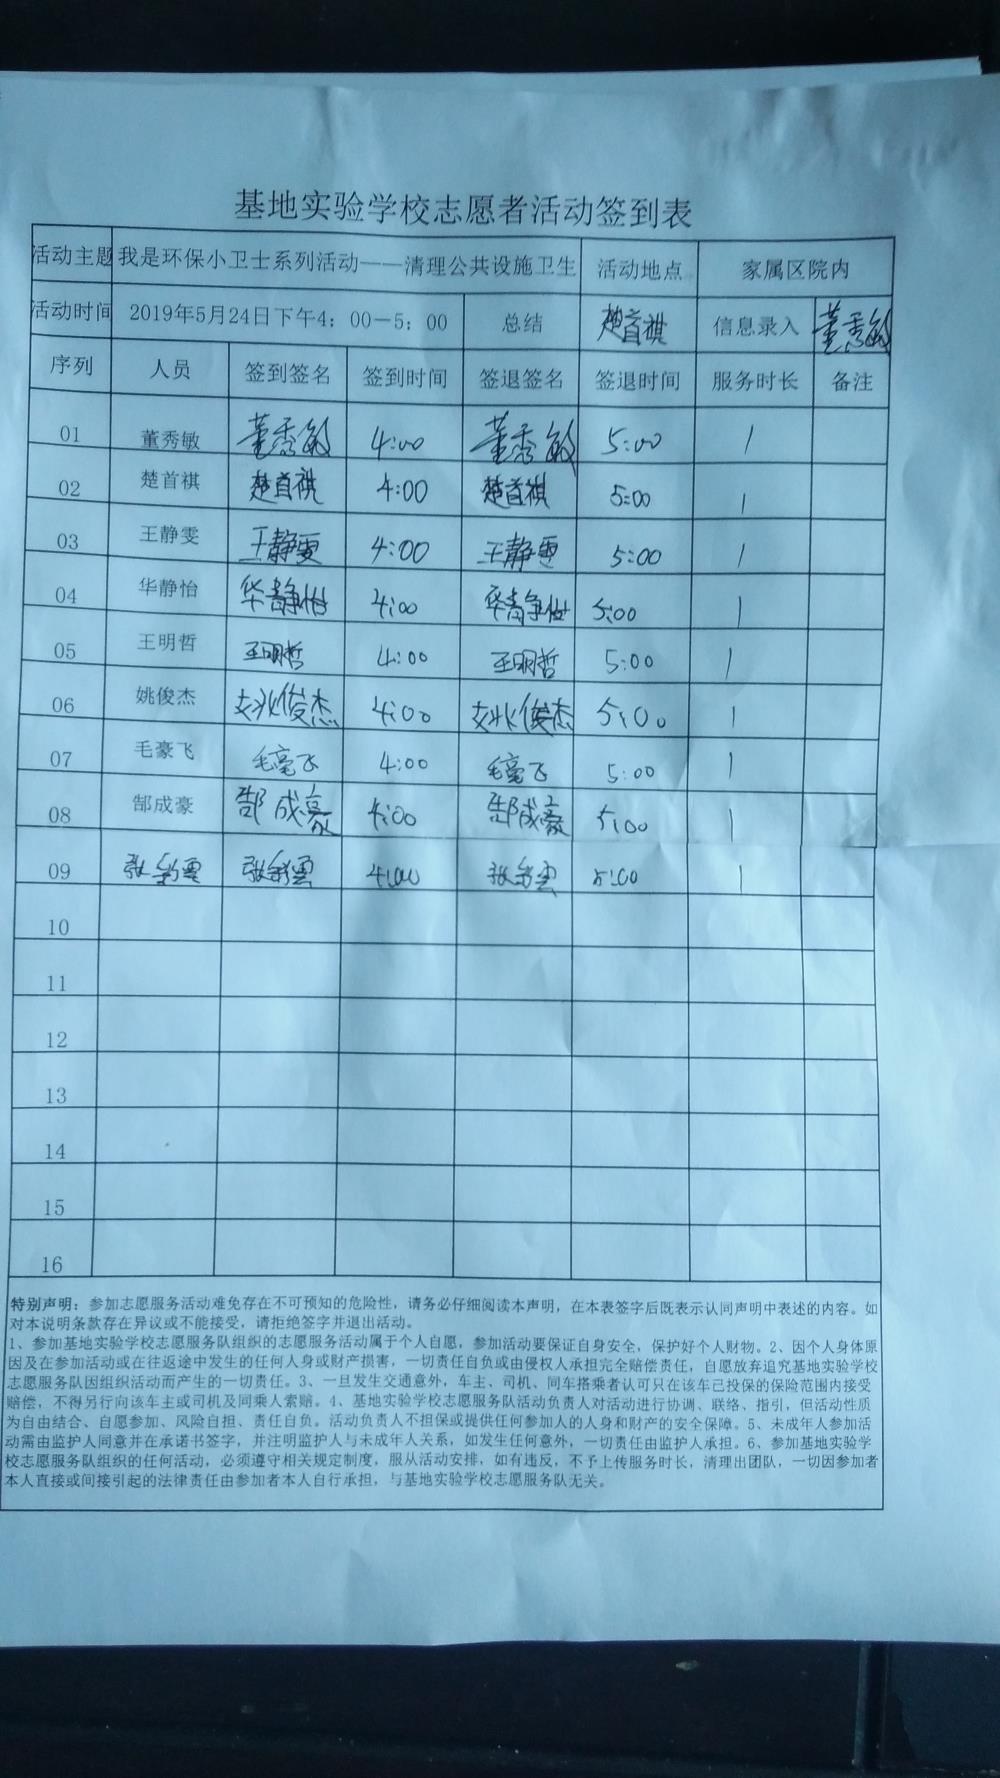 基地实验学校志愿者活动签到表
活动主题 我是环保小卫士系列活动——清理公共设施卫生 活动地点 家属区院内
活动时间 2019年5月24日下午4：00－5：00 总结 楚首祺 信息录入 董秀敏
序列 人员 签到签名 签到时间 签退签名 签退时间 服务时长 备注
01 董秀敏 董秀敏 4:00 董秀敏 5:00 1
02 楚首祺 楚首祺 4:00 楚首祺 5:00 1
03 王静雯 王静雯 4:00 王静雯 5:00 1
04 华静怡 华静怡 4:00 华静怡 5:00 1
05 王明哲 王明哲 4:00 王明哲 5:00 1
06 姚俊杰 姚俊杰 4:00 姚俊杰 5:00 1
07 毛豪飞 毛毫飞 4:00 毛毫飞 5:00 1
08 郜成豪 郜成豪 4:00 郜成豪 5:00 1
09 4:00 5:00 1
10
11
12
13
14
15
16
特别声明：参加志愿服务活动难免存在不可预知的危险性，请务必仔细阅读本声明，在本表签字后既表示认同声明中表述的内容。如
对本说明条款存在异议或不能接受，请拒绝签字并退出活动。
1、参加基地实验学校志愿服务队组织的志愿服务活动属于个人自愿，参加活动要保证自身安全，保护好个人财物。2、因个人身体原
因及在参加活动或在往返途中发生的任何人身或财产损害，一切责任自负或由侵权人承担完全赔偿责任，自愿放弃追究基地实验学校
志愿服务队因组织活动而产生的一切责任。3、一旦发生交通意外，车主、司机、同车搭乘者认可只在该车已投保的保险范围内接受
赔偿，不得另行向该车主或司机及同乘人索赔。4、基地实验学校志愿服务队活动负责人对活动进行协调、联络、指引，但活动性质
为自由结合、自愿参加、风险自担、责任自负。活动负责人不担保或提供任何参加人的人身和财产的安全保障。5、未成年人参加活
动需由监护人同意并在承诺书签字，并注明监护人与未成年人关系，如发生任何意外，一切责任由监护人承担。6、参加基地实验学
校志愿服务队组织的任何活动，必须遵守相关规定制度，服从活动安排，如有违反，不予上传服务时长，清理出团队，一切因参加者
本人直接或间接引起的法律责任由参加者本人自行承担，与基地实验学校志愿服务队无关。